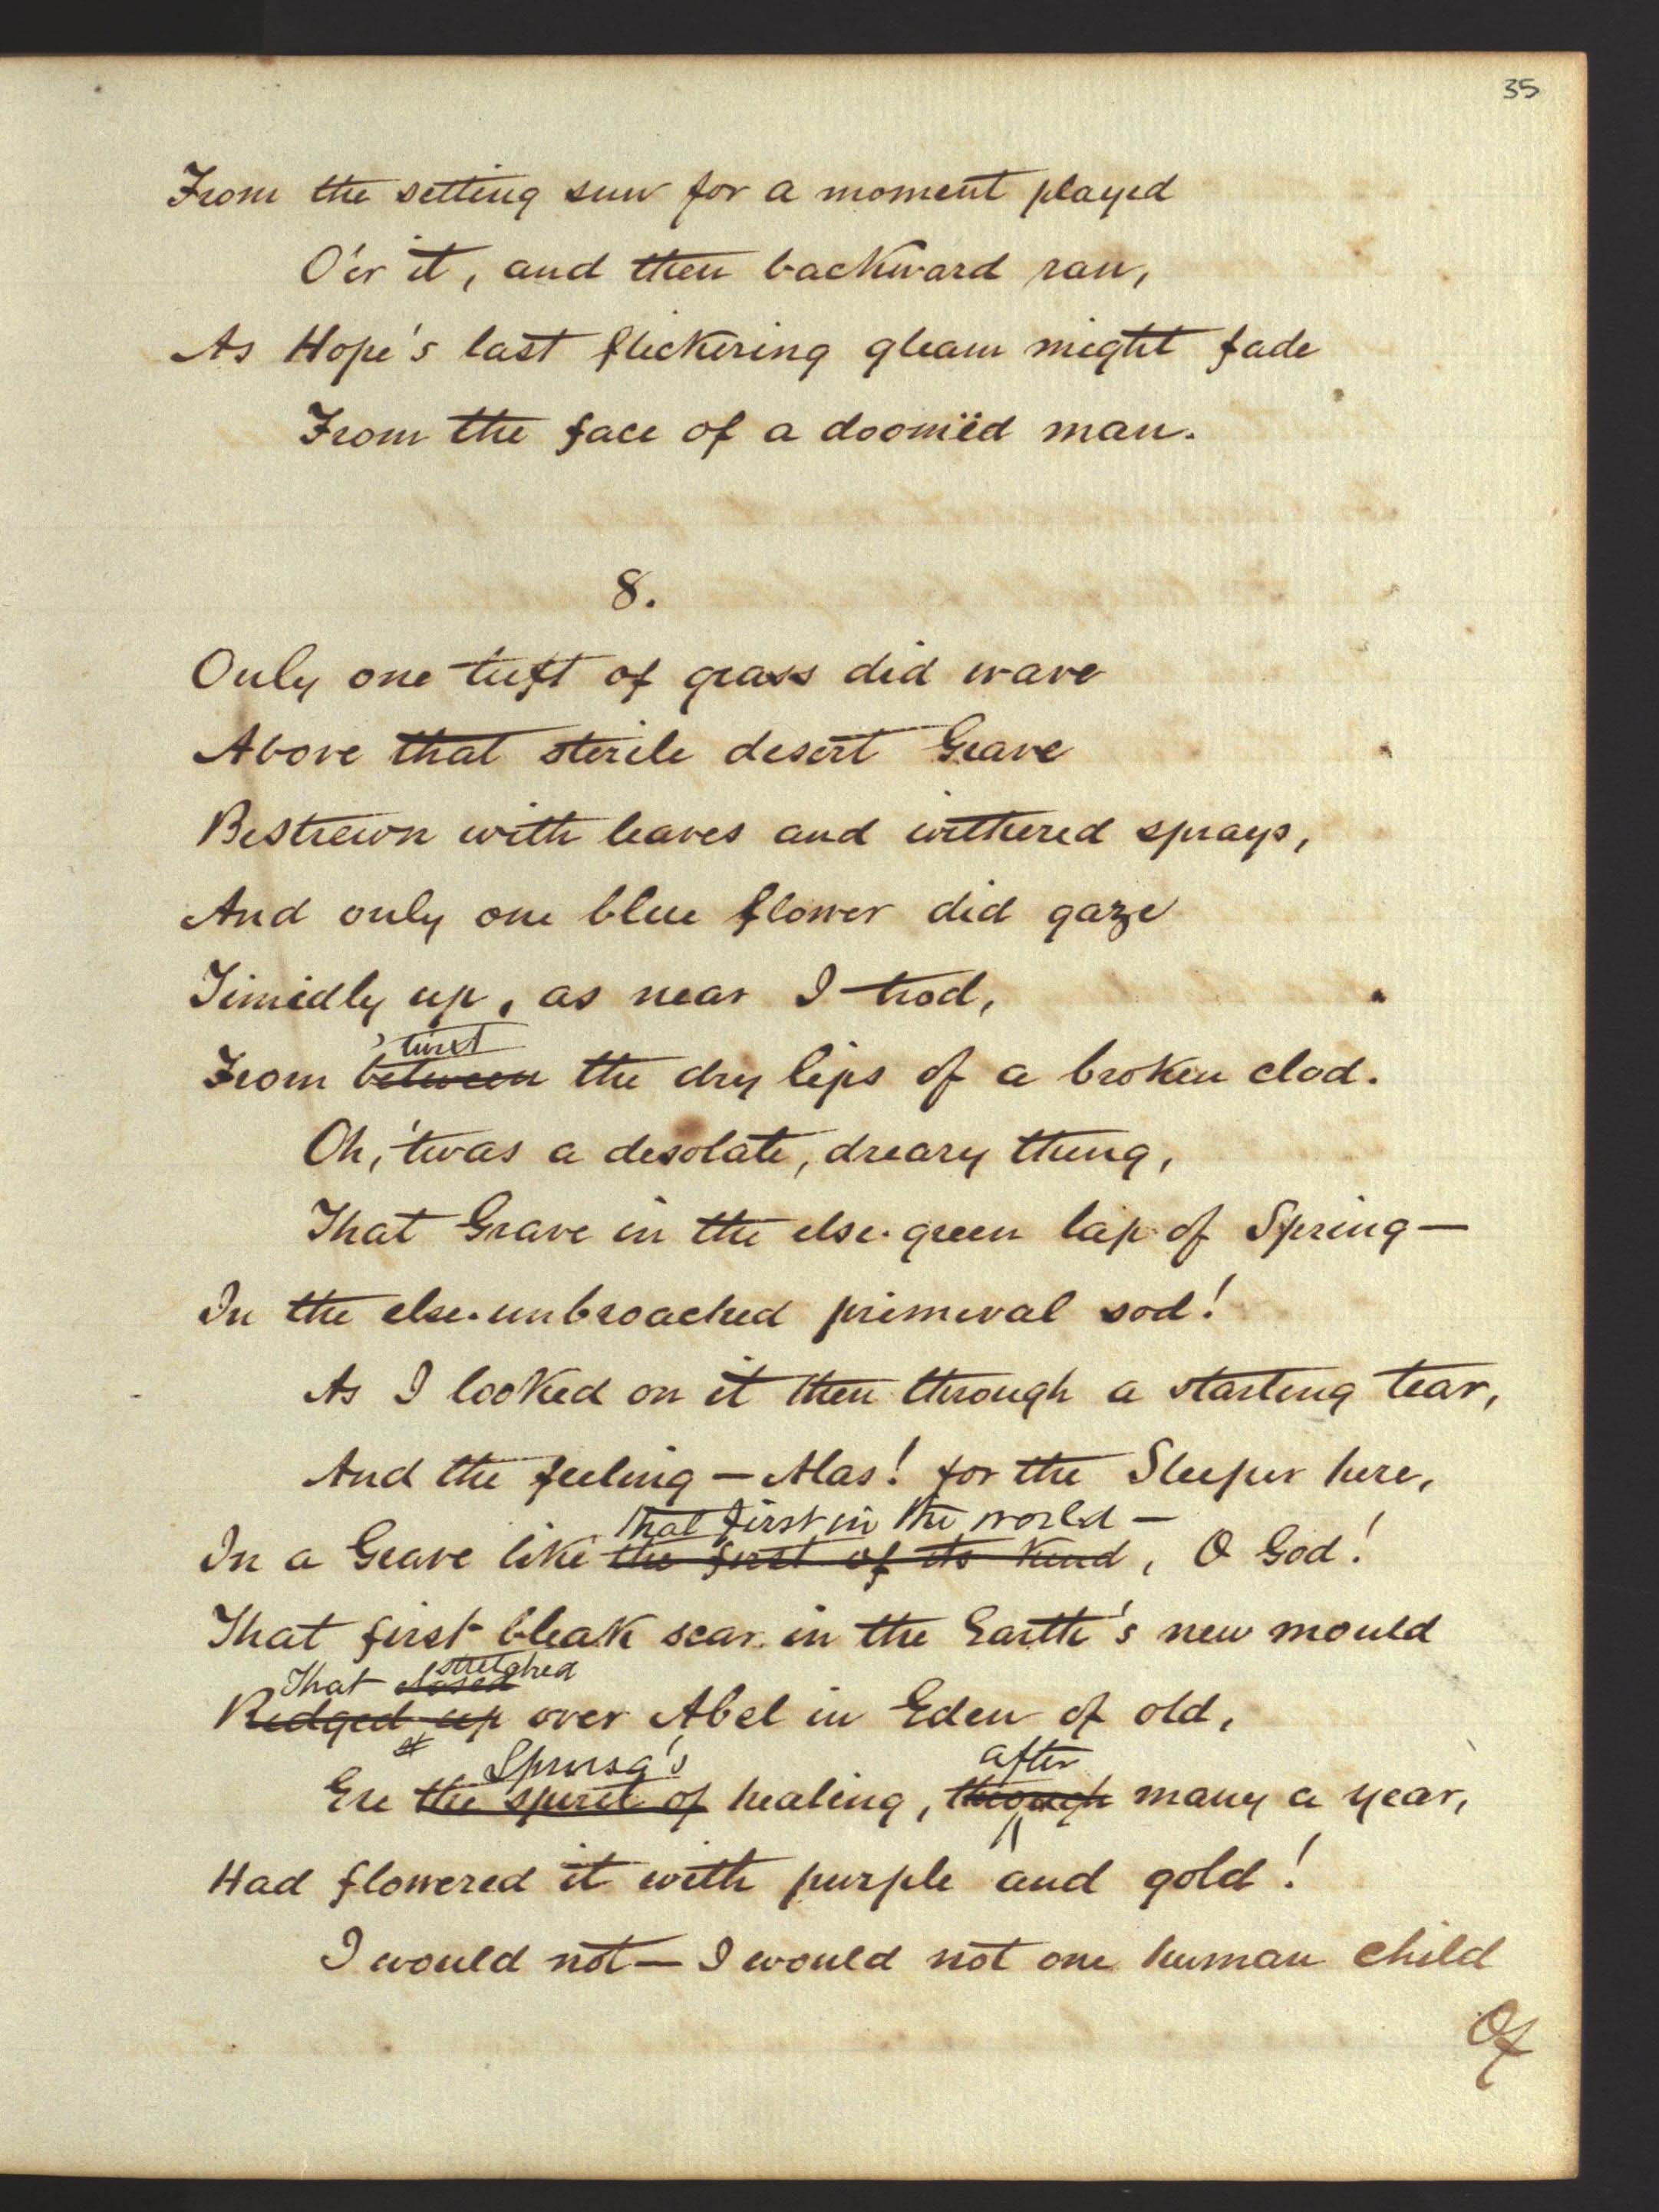 35
From the setting sun for a moment played
O'er it, and then backward ran,
As Hope's last flickering gleam might fade
From the face of a doomëd man.
8.
Only one tuft of grass did wave
Above that sterile desert Grave
Bestrewn with leaves and withered sprays,
And only one blue flower did gaze
Timidly up, as near I trod,
'twixt
From between the dry lips of a broken clod.
Oh, 'twas a desolate, dreary thing,
That Grave in the else-green lap of Spring—
In the else-unbroached primeval sod!
As I looked on it then through a starting tear,
And the feeling — Alas! for the Sleeper here,
that first in the world —
In a Grave like the first of its kind, O God!
That first bleak scar in the Earth's new mould
That closed stretched
Ridged up over Abel in Eden of old,
Spring's after
Ere the spirit of healing, through many a year,
Had flowered it with purple and gold!
I would not — I would not one human child
Of